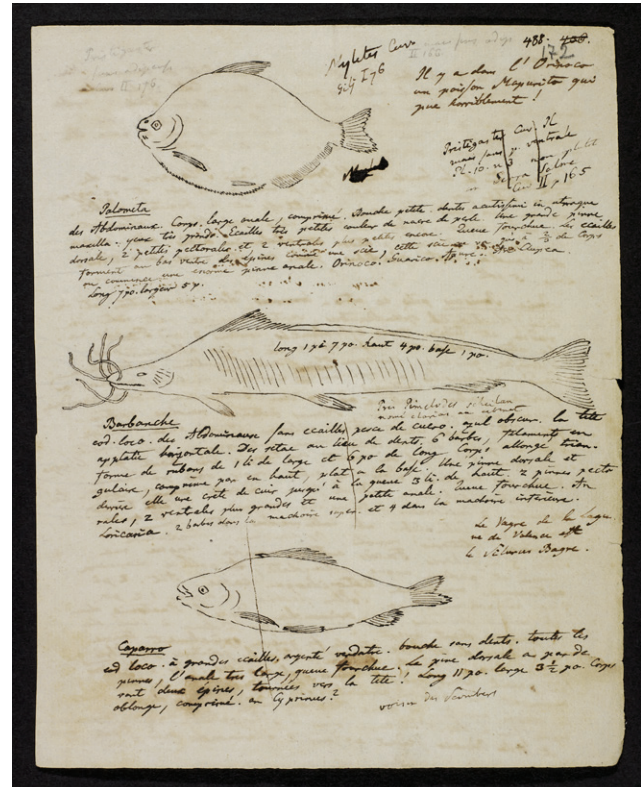 Myletes Cuv
488. 408.
172
Il y a dans l'Orinoco
un poisson Mapurito qui
pue horriblement !
Pristigaster Cuv. Il
mais sans p. ventrale
Cuv II p 165
Palometa
des Abdominaux. Corps large ovale, comprimé. Bouche petite. dentes acutissimi in utraque
maxilla. yeux très grands. Ecailles très petites couleur de nacre de perle. Une grande pinne
dorsale, 2 petites pectorales et 2 ventrales plus petites encore. Queue fourchue. les ecailles
forment au bas ventre des épines comme une scie, cette scie
ou commence une enorme pinne anale. Orinoco. Guarico. Apure.
Long 7 po. largeur 5 p.
long 1 pi 7 po. haut 4 po. base 1 po.
Barbanche
eod. loco. des Abdominaux sans ecailles, pesce de cuero. azul obscur. la tête
applatie horizontale. Des setae au lieu de dents. 6 barbes, filaments en
forme de rubans de 1 li de large et 6 po de long. Corps allongé trian-
gulaire, comprimé par en haut, plat a la base. Une pinne dorsale et
derrière elle une crète de cuir jusqu'à la queue 3 li. de haut. 2 pinnes pecto
rales, 2 ventrales plus grandes et une petite anale. Queue fourchue. An
Loricaria. 2 barbes dans la machoire super. et 4 dans la machoire inferieure.
Le Vagre de la Lagu
na de Valence est
le Silurus Bagre.
Caparro
eod loco. à grandes ecailles, argenté verdatre. bouche sans dents. toutes les
pinnes, l'anale très large, queue fourchue. La pine dorsale a par de
vant deux épines, tournées vers la tête ! Long 11 po. large 3 ½ po. Corps
oblonge, comprimé. an Cyprinus ?
voisin des Scombers